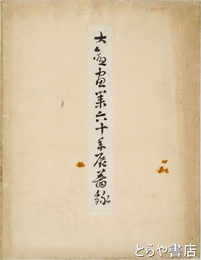 大亀画業六十年展図録
とらや書店